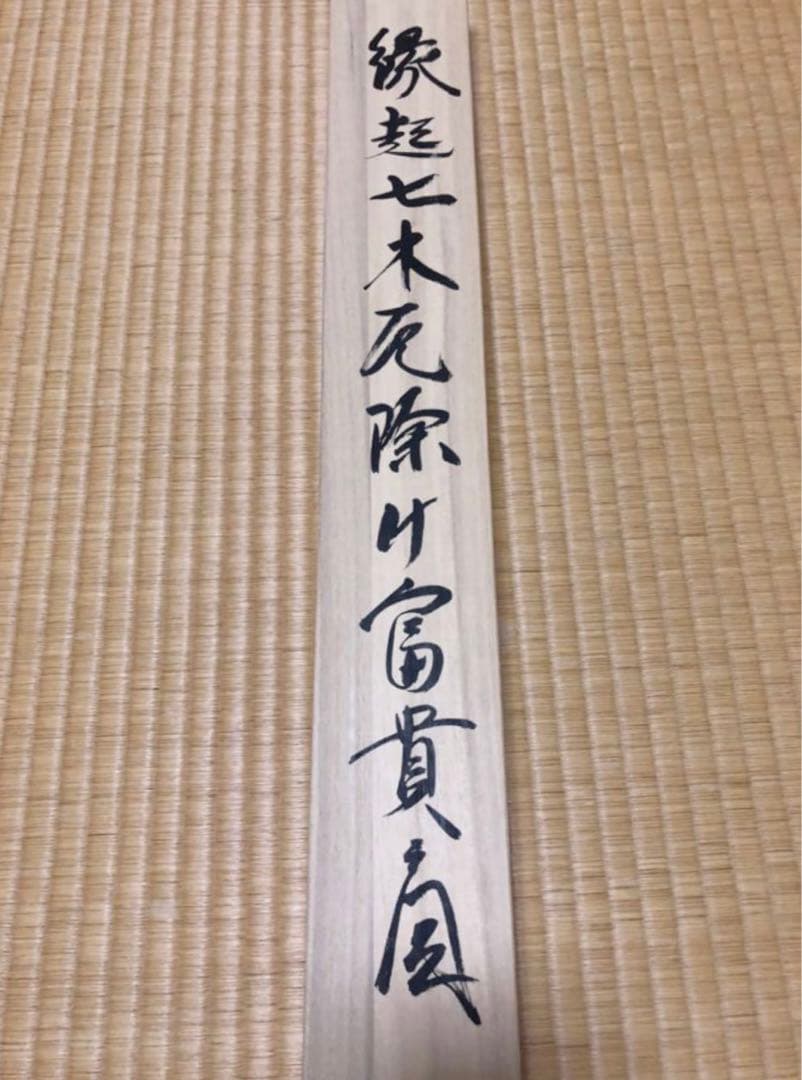 縁起七木厄除け富貴之図